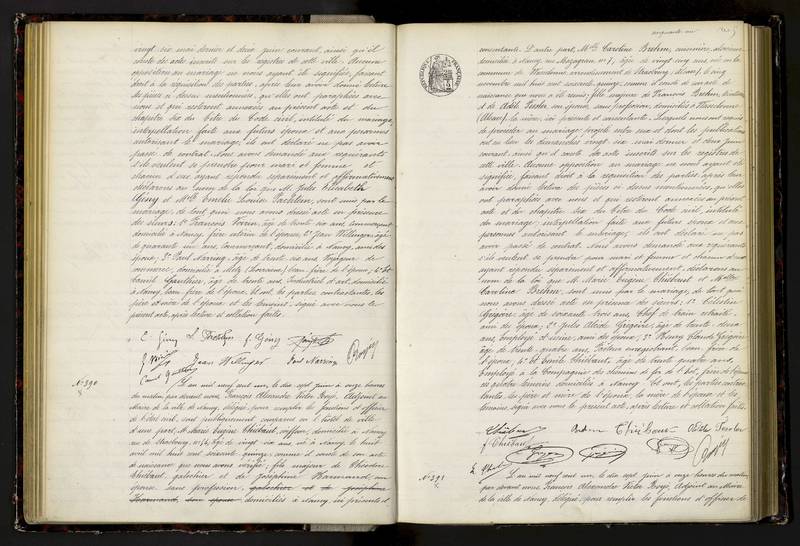 vingt six mai dernier et deux juin courant, ainsi qu'il
conste des actes inscrits sur les registres de cette ville. Aucune
opposition au mariage ne nous ayant été signifiée, faisant
droit à la réquisition des parties, après leur avoir donné lecture
des pièces ci dessus mentionnées, qu'elles ont paraphées avec
nous et qui resteront annexées au présent acte et du
chapitre six du titre du Code civil, intitulé du mariage,
interpellation faite aux futurs époux et aux personnes
autorisant le mariage, ils ont déclaré ne pas avoir
passé de contrat. Nous avons demandé aux requérants
s'ils veulent se prendre pour mari et femme et
chacun d'eux ayant répondu séparément et affirmativement
déclarons au nom de la loi que M. Jules Elisabeth
Giny et Mlle Emélie Louise sont unis par le
mariage, de tout quoi nous avons dressé acte en présence
des sieurs: 1° François Voirin, âgé de trente six ans,
domicilié à Nancy, frère utérin de l'époux; 2° Jean Willinger, âgé
de quarante un ans, commerçant, domicilié à Nancy, ami des
époux; 3° Paul Narring, âgé de trente six ans, Voyageur de
commerce, domicilié à Metz (Lorraine), beau frère de l'époux; 4° Et
Camille Gauthier, âgé de trente ans, Industriel d'art, domicilié
à Nancy, beau frère de l'épouse. Et ont, les parties contractantes, les
père et mère de l'épouse et les témoins, signé avec nous le
présent acte, après lecture et collation faites.
E. Giny
Jean Willinger Paul Narring
N° 390
L'an mil neuf cent un, le dix sept juin à onze heures
du matin, par devant nous, François Alexandre Victor Boyé, Adjoint au
Maire de la ville de Nancy, délégué pour remplir les fonctions d'officier
de l'état civil, sont publiquement comparus en l'hôtel de ville
d'une part, M. Marie Eugène Thiébaut, coiffeur, domicilié à Nancy
rue de Strasbourg, n° 54, âgé de vingt six ans né à Nancy, le huit
avril mil huit cent soixante quinze, comme il conste de son acte
de naissance que nous avons vérifié, fils majeur de Théodore
Thiébaut, galochier et de Joséphine Harmand, son
épouse sans profession, galochier et de Joséphine
Harmand, son épouse domiciliés à Nancy, ici présents et
cinquante un
consentants. D'autre part, Mlle Caroline Brehm, cuisinière,
domiciliée à Nancy, rue Mazagran, n° 7, âgée de vingt cinq ans née en la
commune de Wasselonne, arrondissement de Strasbourg (Alsace), le cinq
novembre mil huit cent soixante quinze, comme il conste de son acte de
naissance que nous a été remis, fille majeure de François Brehm,
et de Odile son épouse, sans profession, domiciliés à Wasselonne
(Alsace), la mère, ici présente et consentante. Lesquels nous ont requis
de procéder au mariage projeté entre eux et dont les publications
ont eu lieu les dimanches vingt six mai dernier et deux juin
courant, ainsi qu'il conste des actes inscrits sur les registres de
cette ville. Aucune opposition au mariage ne nous ayant été
signifiée, faisant droit à la réquisition des parties, après leur
avoir donné lecture des pièces ci dessus mentionnées, qu'elles
ont paraphées avec nous et qui resteront annexées au présent
acte et du chapitre six du titre du Code civil, intitulé
du mariage, interpellation faite aux futurs époux et aux
personnes autorisant le mariage, ils ont déclaré ne pas
avoir passé de contrat. Nous avons demandé aux requérants
s'ils veulent se prendre pour mari et femme et chacun d'eux
ayant répondu séparément et affirmativement, déclarons au
nom de la loi que M. Marie Eugène Thiébaut et Mlle
Caroline Brehm, sont unis par le mariage, de tout quoi
nous avons dressé acte en présence des sieurs: 1° Célestin
Grégoire, âgé de soixante trois ans, Chef de train retraité,
ami des époux; 2° Jules Alcide Grégoire, âgé de trente deux
ans, Employé d'usine, ami des époux; 3° Henry Claude Grégoire
âgé de trente quatre ans, beau frère de
l'époux; 4° Et Emile Thiébaut, âgé de trente quatre ans,
Employé à la Compagnie des chemins de fer de l'Est, frère de l'époux
ces quatre témoins domiciliés à Nancy. Et ont, les parties contractantes,
les père et mère de l'époux, la mère de l'épouse et les
témoins signé avec nous le présent acte, après lecture et collation faites.
Thiébaut Odile
f Thiébaut
N° 391
L'an mil neuf cent un, le dix sept juin à onze heures du matin,
par devant nous François Alexandre Victor Boyé, Adjoint au Maire
de la ville de Nancy, délégué pour remplir les fonctions d'officier de